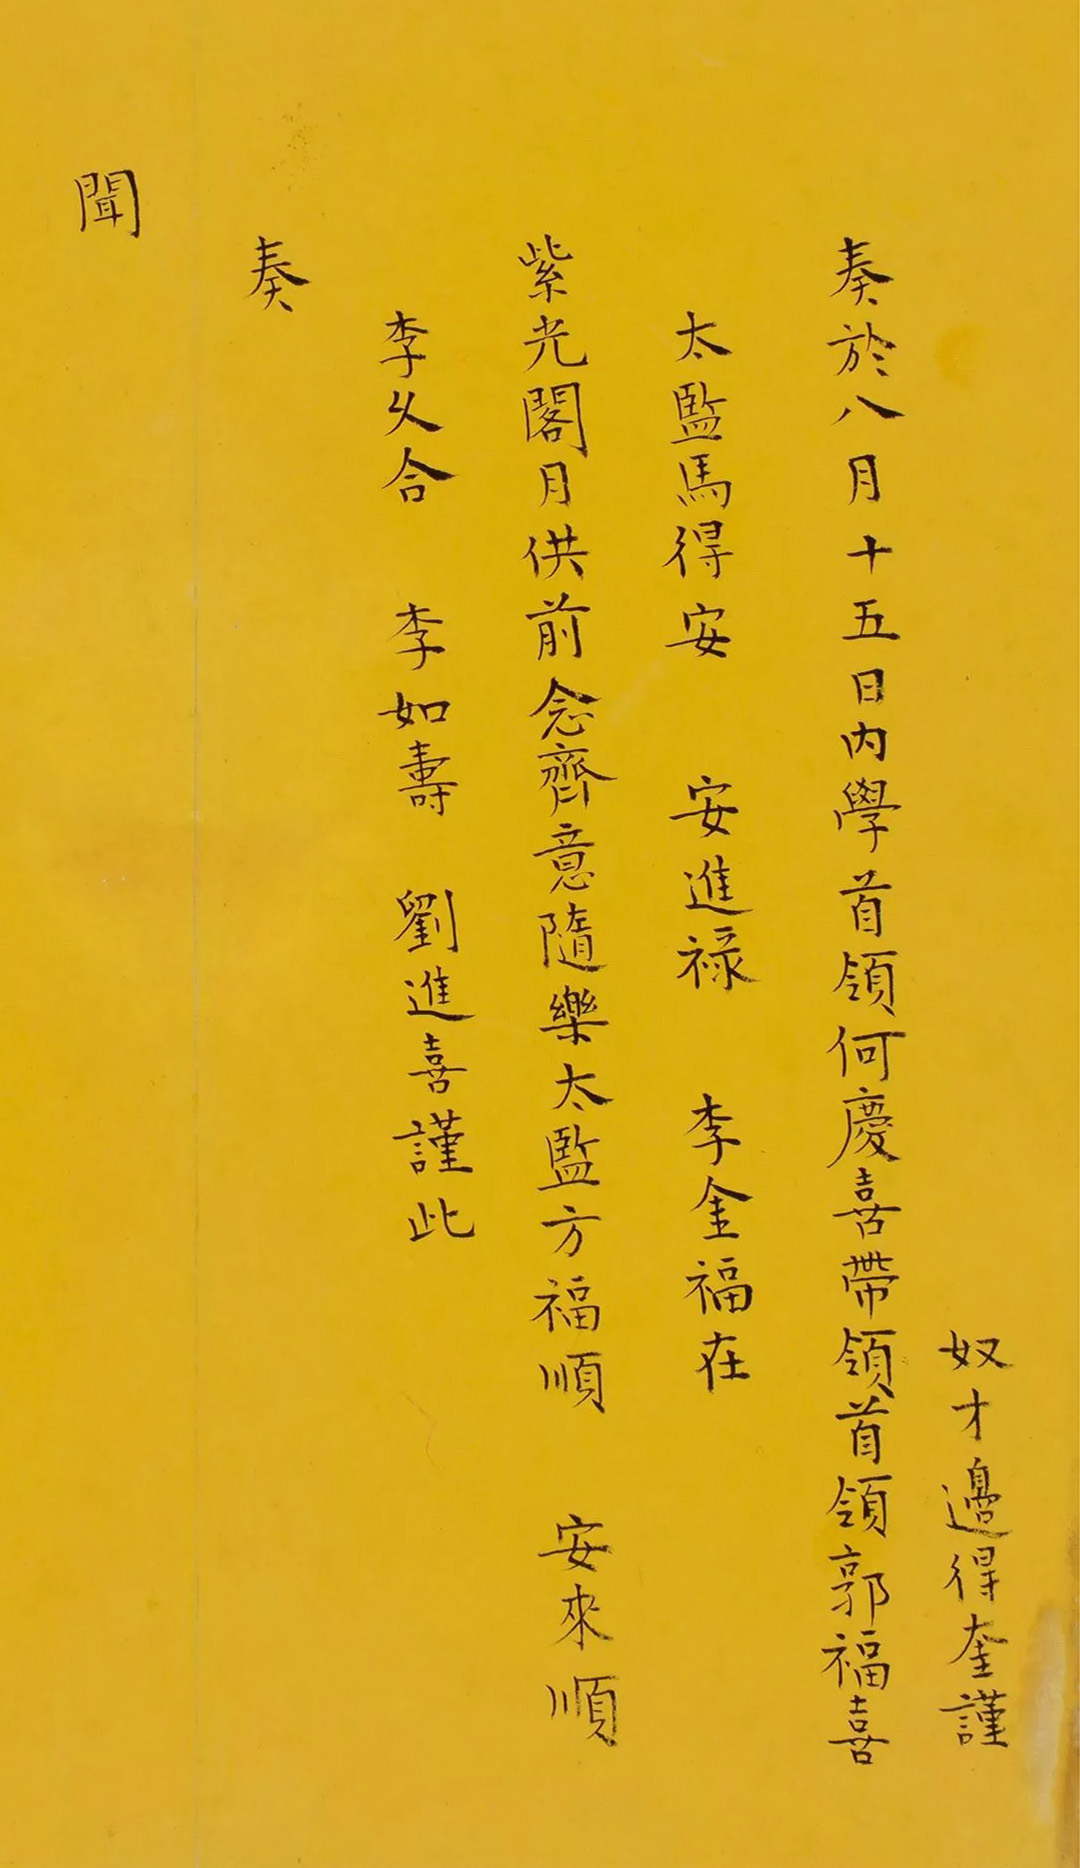 奴才邊得奎謹
奏於八月十五日內學首領何慶喜帶領首領郭福喜
太監馬得安 安進祿 李金福在
紫光閣月供前念齊意隨樂太監方福順 安來順
李乆合 李如壽 劉進喜謹此
奏
聞